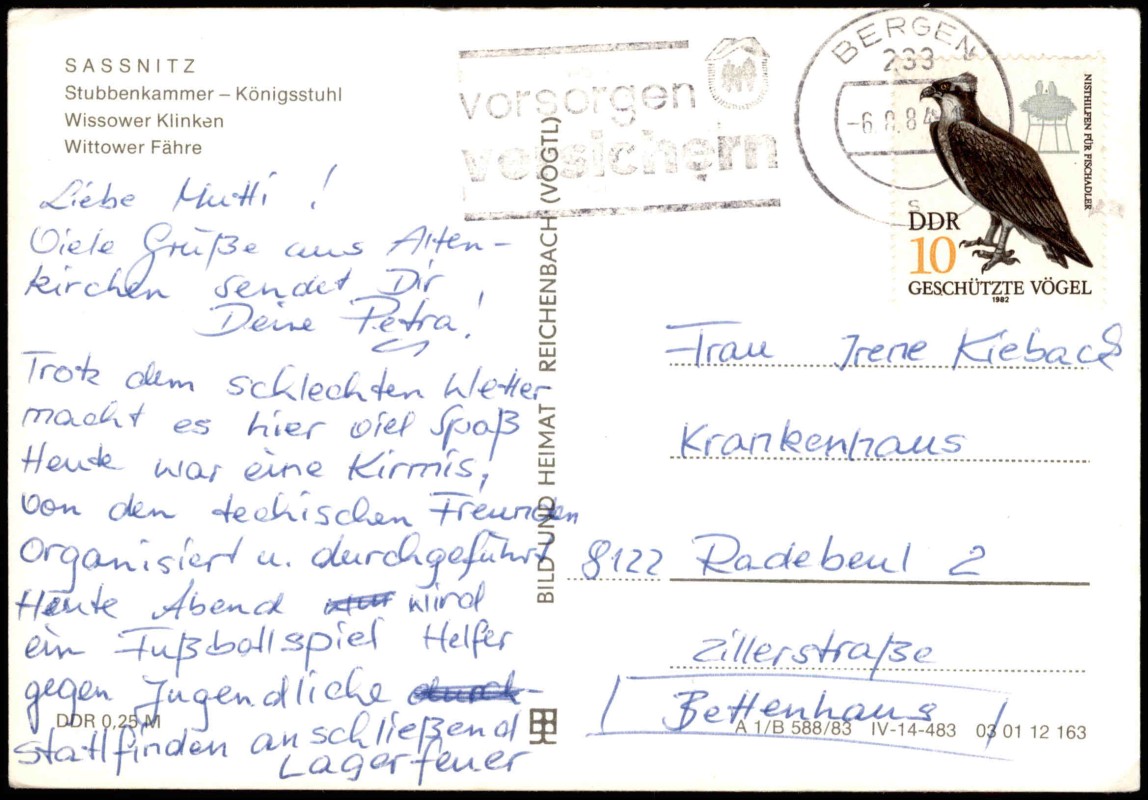 SASSNITZ
Stubbenkammer – Königsstuhl
Wissower Klinken
Wittower Fähre
Liebe Mutti !
Viele Grüße aus Alten-
kirchen sendet Dir
Deine Petra!
Trotz dem schlechten Wetter
macht es hier viel Spaß
Heute war eine Kirmis,
von den techischen Freunden
Organisiert u. durchgeführt
Heute Abend wird
ein Fußballspiel Helfer
gegen Jugendliche
stattfinden anschließend
Lagerfeuer
DDR 0,25 M
BILD UND HEIMAT REICHENBACH (VOGTL)
vorsorgen
versichern
BERGEN
233
-6.8.84
s
NISTHILFEN FÜR FISCHADLER
DDR
10
GESCHÜTZTE VÖGEL
1982
Frau Irene Kieback
Krankenhaus
8122 Radebeul 2
Zillerstraße
Bettenhaus
A 1/B 588/83 IV-14-483 03 01 12 163